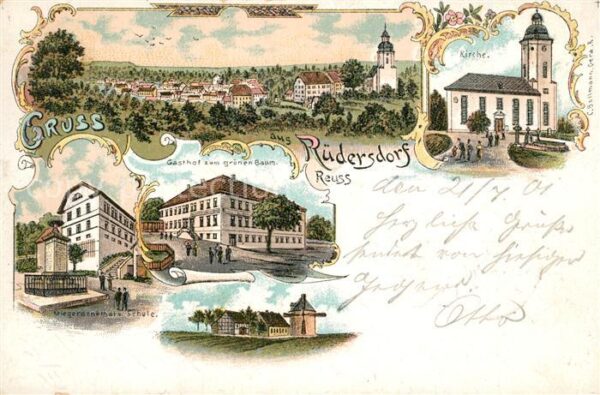 Gruss
aus
Rüdersdorf
Reuss
Kirche.
C. Bollmann, Gera R.
Gasthof zum grünen Baum.
Kriegerdenkmal u. Schule.
den 21/7 01
Herzliche Grüße
sendet von hiesiger
Gegend
Otto